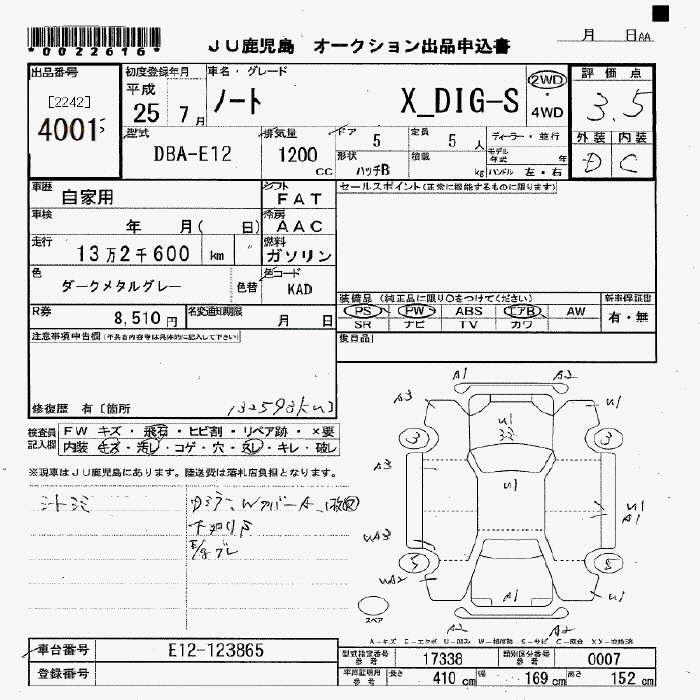 *0022616*
JU鹿児島 オークション出品申込書
月 日AA
出品番号
[2242]
4001
初度登録年月
平成
25 7月
車名・グレード
ノート X_DIG-S
2WD
・
4WD
評価点
3.5
外装 内装
D C
型式
DBA-E12
排気量
1200
CC
ドア
5
定員
5人
ディーラー・並行
形状
ハッチB
積載
kg
モデル年式 年
ハンドル 左・右
車歴
自家用
シフト
FAT
セールスポイント(正常に機能するものに限ります)
車検
年 月( 日)
冷房
AAC
走行
13万2千600 km
燃料
ガソリン
色
ダークメタルグレー
色替
色コード
KAD
装備品(純正品に限り○をつけてください)
新車保証書
PS PW ABS エアB AW
有・無
SR ナビ TV カワ
R券
8,510円
名変通知期限
月 日
後日品
注意事項申告欄(不具合内容等は具体的に記入して下さい)
修復歴 有[箇所
132593km]
検査員記入欄
FW キズ・飛石・ヒビ割・リペア跡・×要
内装 キズ・汚レ・コゲ・穴・スレ・キレ・破レ
※現車はJU鹿児島にあります。陸送費は落札店負担となります。
シートシミ
下廻りサビ
A1 A2
A3 U1
U1
3 3
A3
U1
U1
A1
UA3
5 5
UA2
A1
U1
A2 A2
スペア
A-キズ E-エクボ U-凹み W-補修跡 S-サビ C-腐食 XX-交換済
車台番号
E12-123865
登録番号
型式指定番号
参考
17338
類別区分番号
参考
0007
車両証明用
参考
長さ
410 cm
幅
169 cm
高さ
152 cm